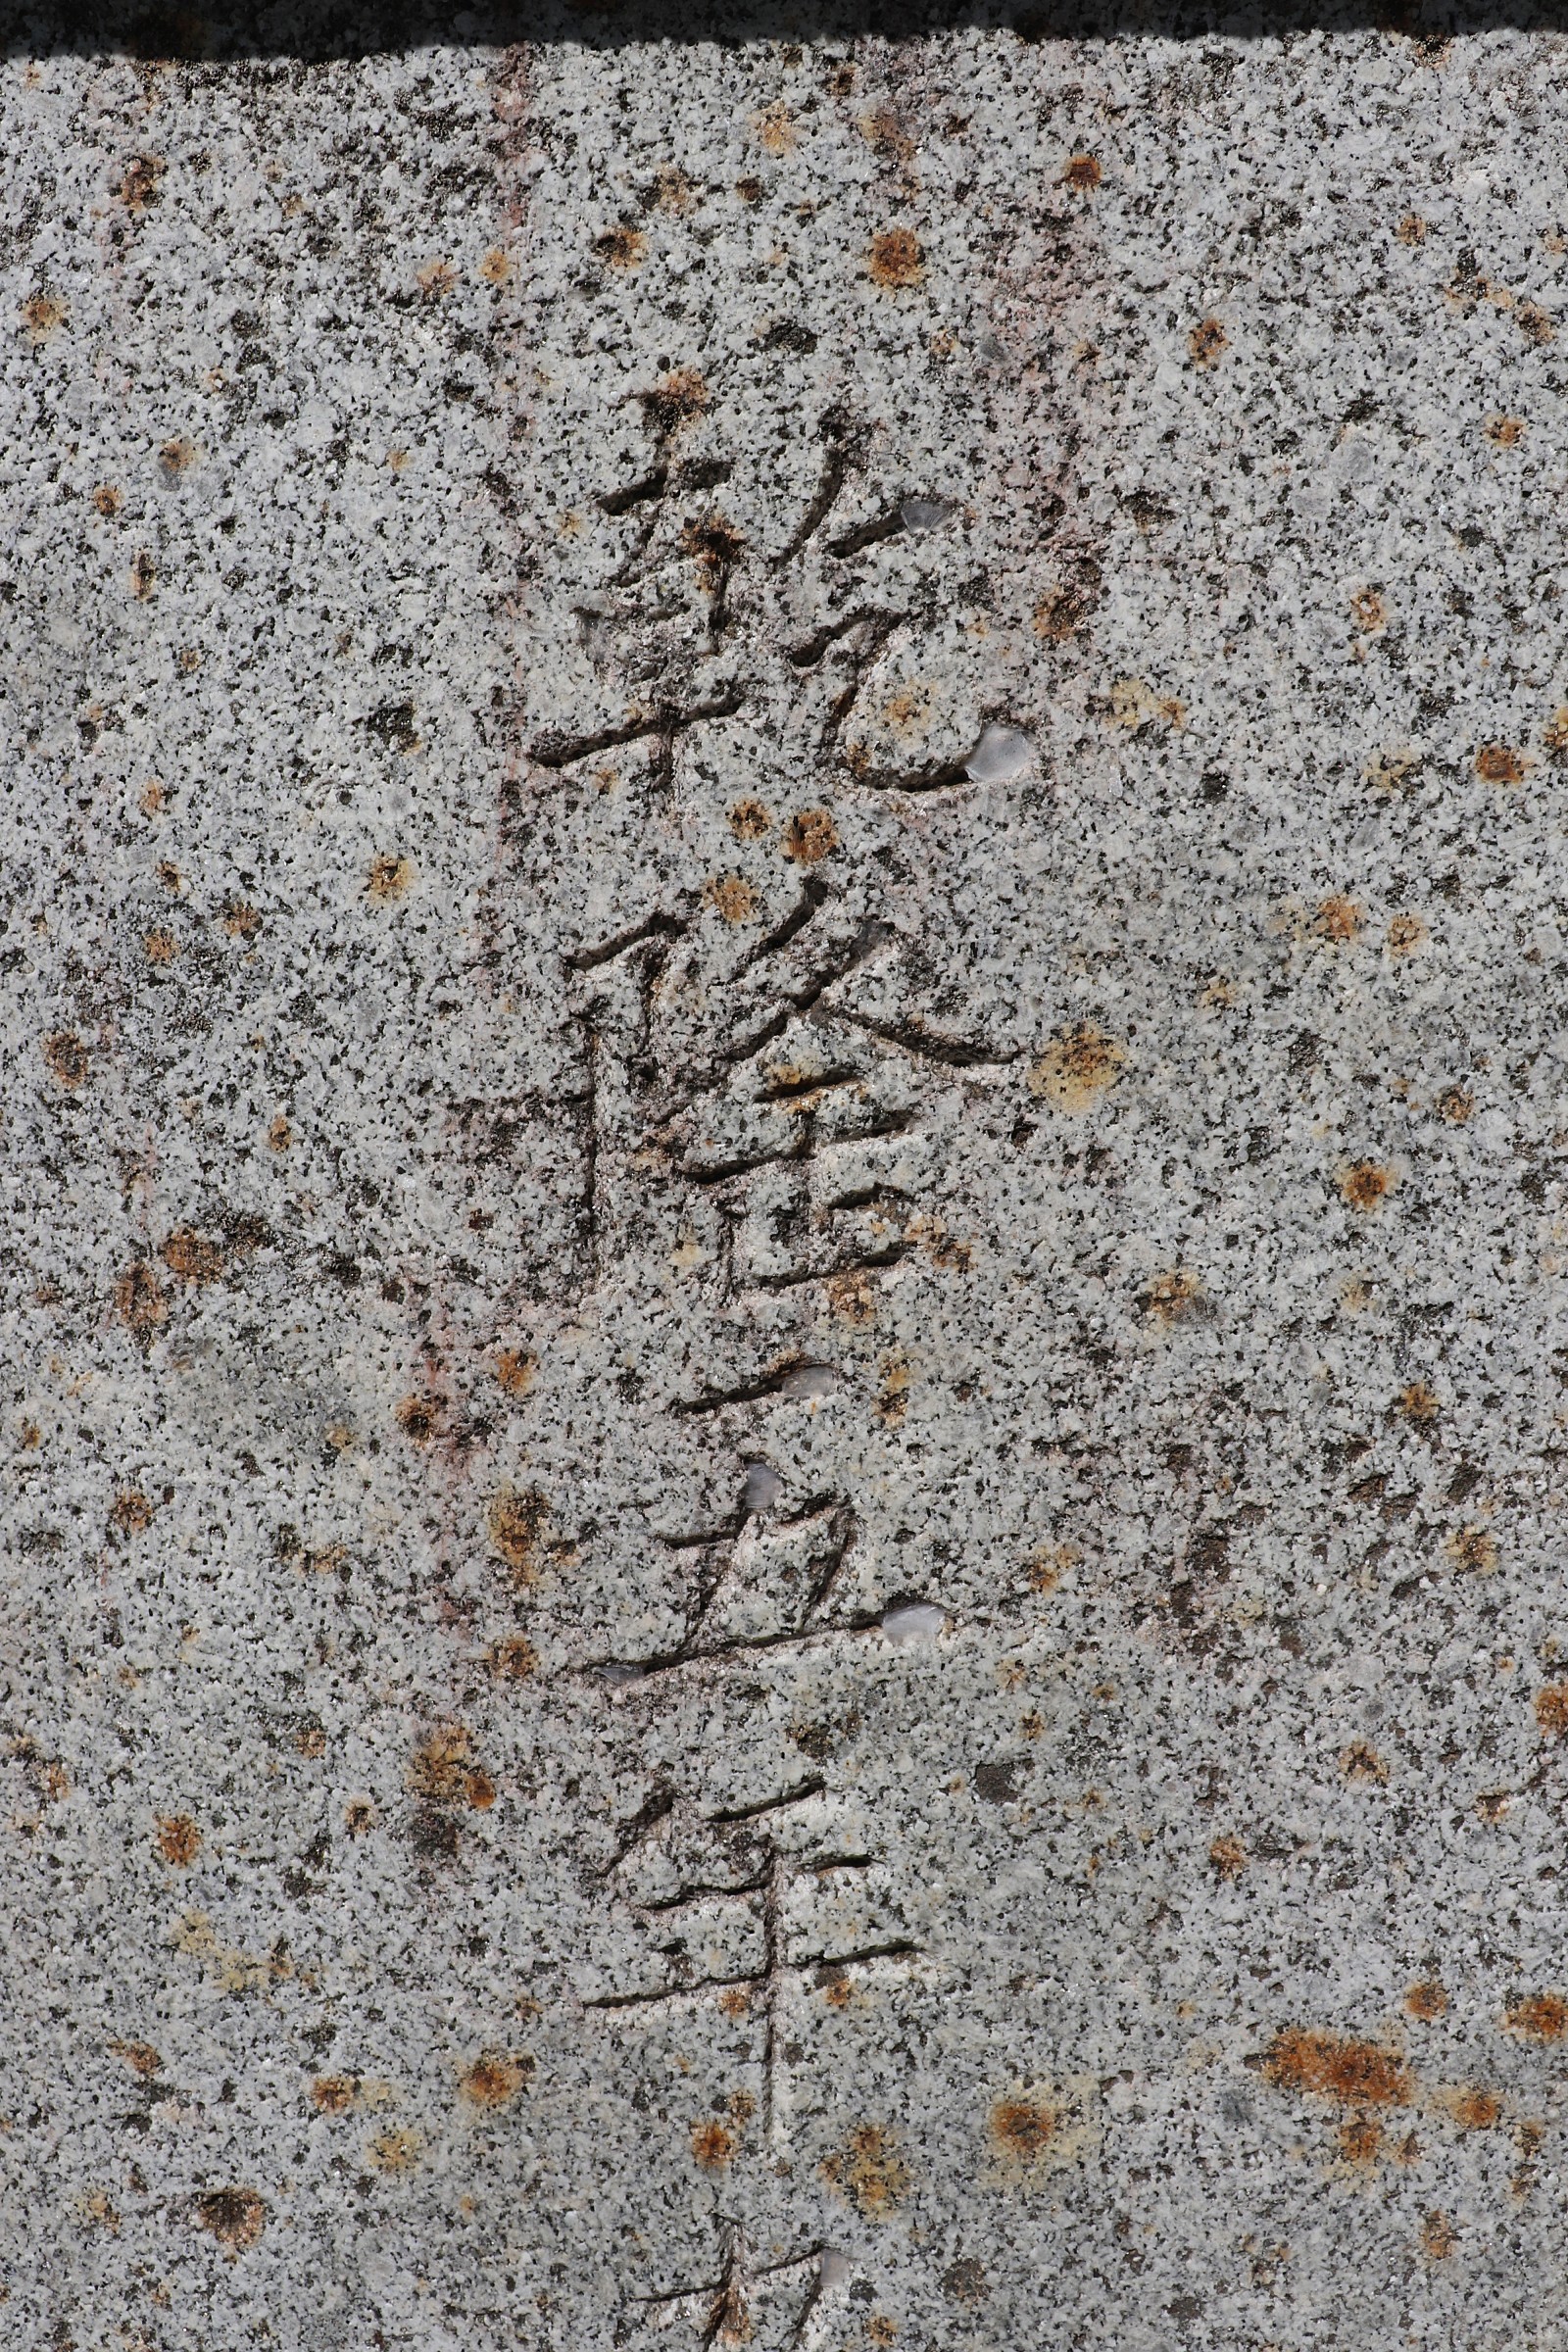 乾隆五年